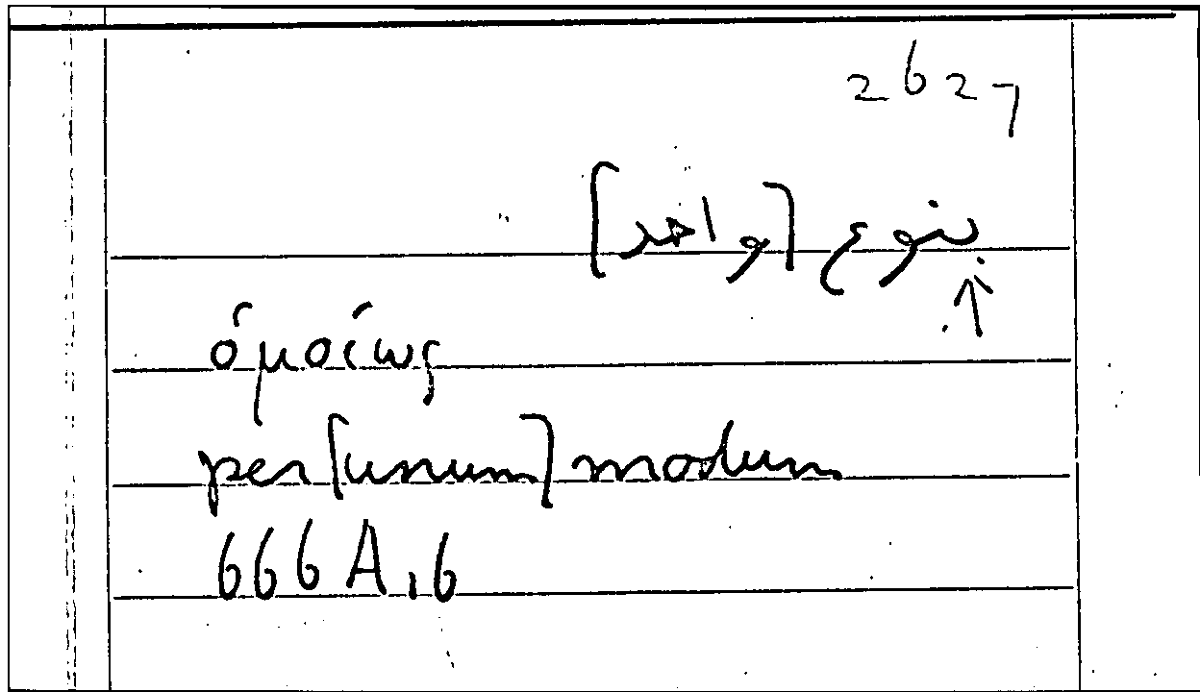 2627
بنوع [واحد]
↑
ὁμοίως
per [unum] modum
666 A,6